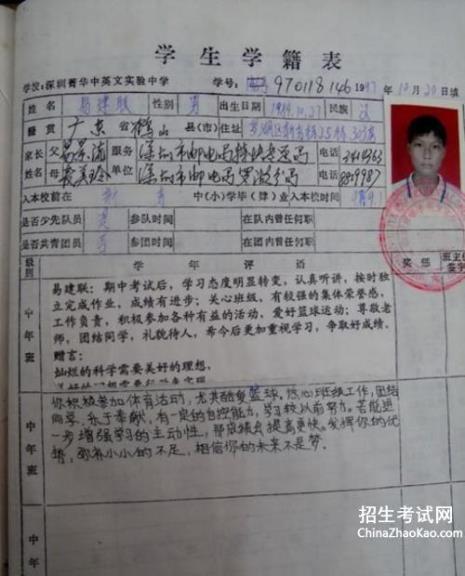 学生学籍表
学校:深圳菁华中英文实验中学 学号: 970118146 1997年10月20日填
姓名 易建联 性别 男 出生日期 1984.10.27 民族 汉
籍贯 广东省鹤山县(市)住址
家长 父 服务 深圳市邮电局 电话
姓名 母 单位 深圳市邮电局 电话
入本校前在 中(小)学毕(肄)业入本校时间
是否少先队员 参队时间 在队内曾任何职
是否共青团员 否 参团时间 在团内曾任何职
级别 学年评语 奖惩 班主任签字
中年班
易建联:期中考试后,学习态度明显转变,认真听讲,按时独
立完成作业,成绩有进步;关心班级,有较强的集体荣誉感,
工作负责,积极参加各种有益的活动,爱好篮球运动;尊敬老
师,团结同学,礼貌待人,希今后更加重视学习,争取好成绩。
赠言:
灿烂的科学需要美好的理想,
中年班
你积极参加体育活动,尤其酷爱篮球,热心班级工作,团结
同学,乐于奉献,有一定的自控能力,学习较以前努力。若能进
一步增强学习的主动性,那成绩会提高更快。发挥你的优
势,弥补小小的不足,相信你的未来不是梦。
中年
招生考试网
ChinaZhaoKao.com